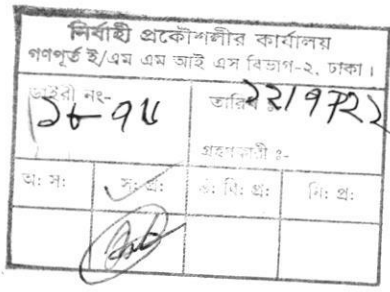 নির্বাহী প্রকৌশলীর কার্যালয়
গণপূর্ত ই/এম এম আই এস বিভাগ-২, ঢাকা।
ডাইরী নং- তারিখ
গ্রহণকারী :-
অ: স: স: প্র: উ: বি: প্র: নি: প্র: